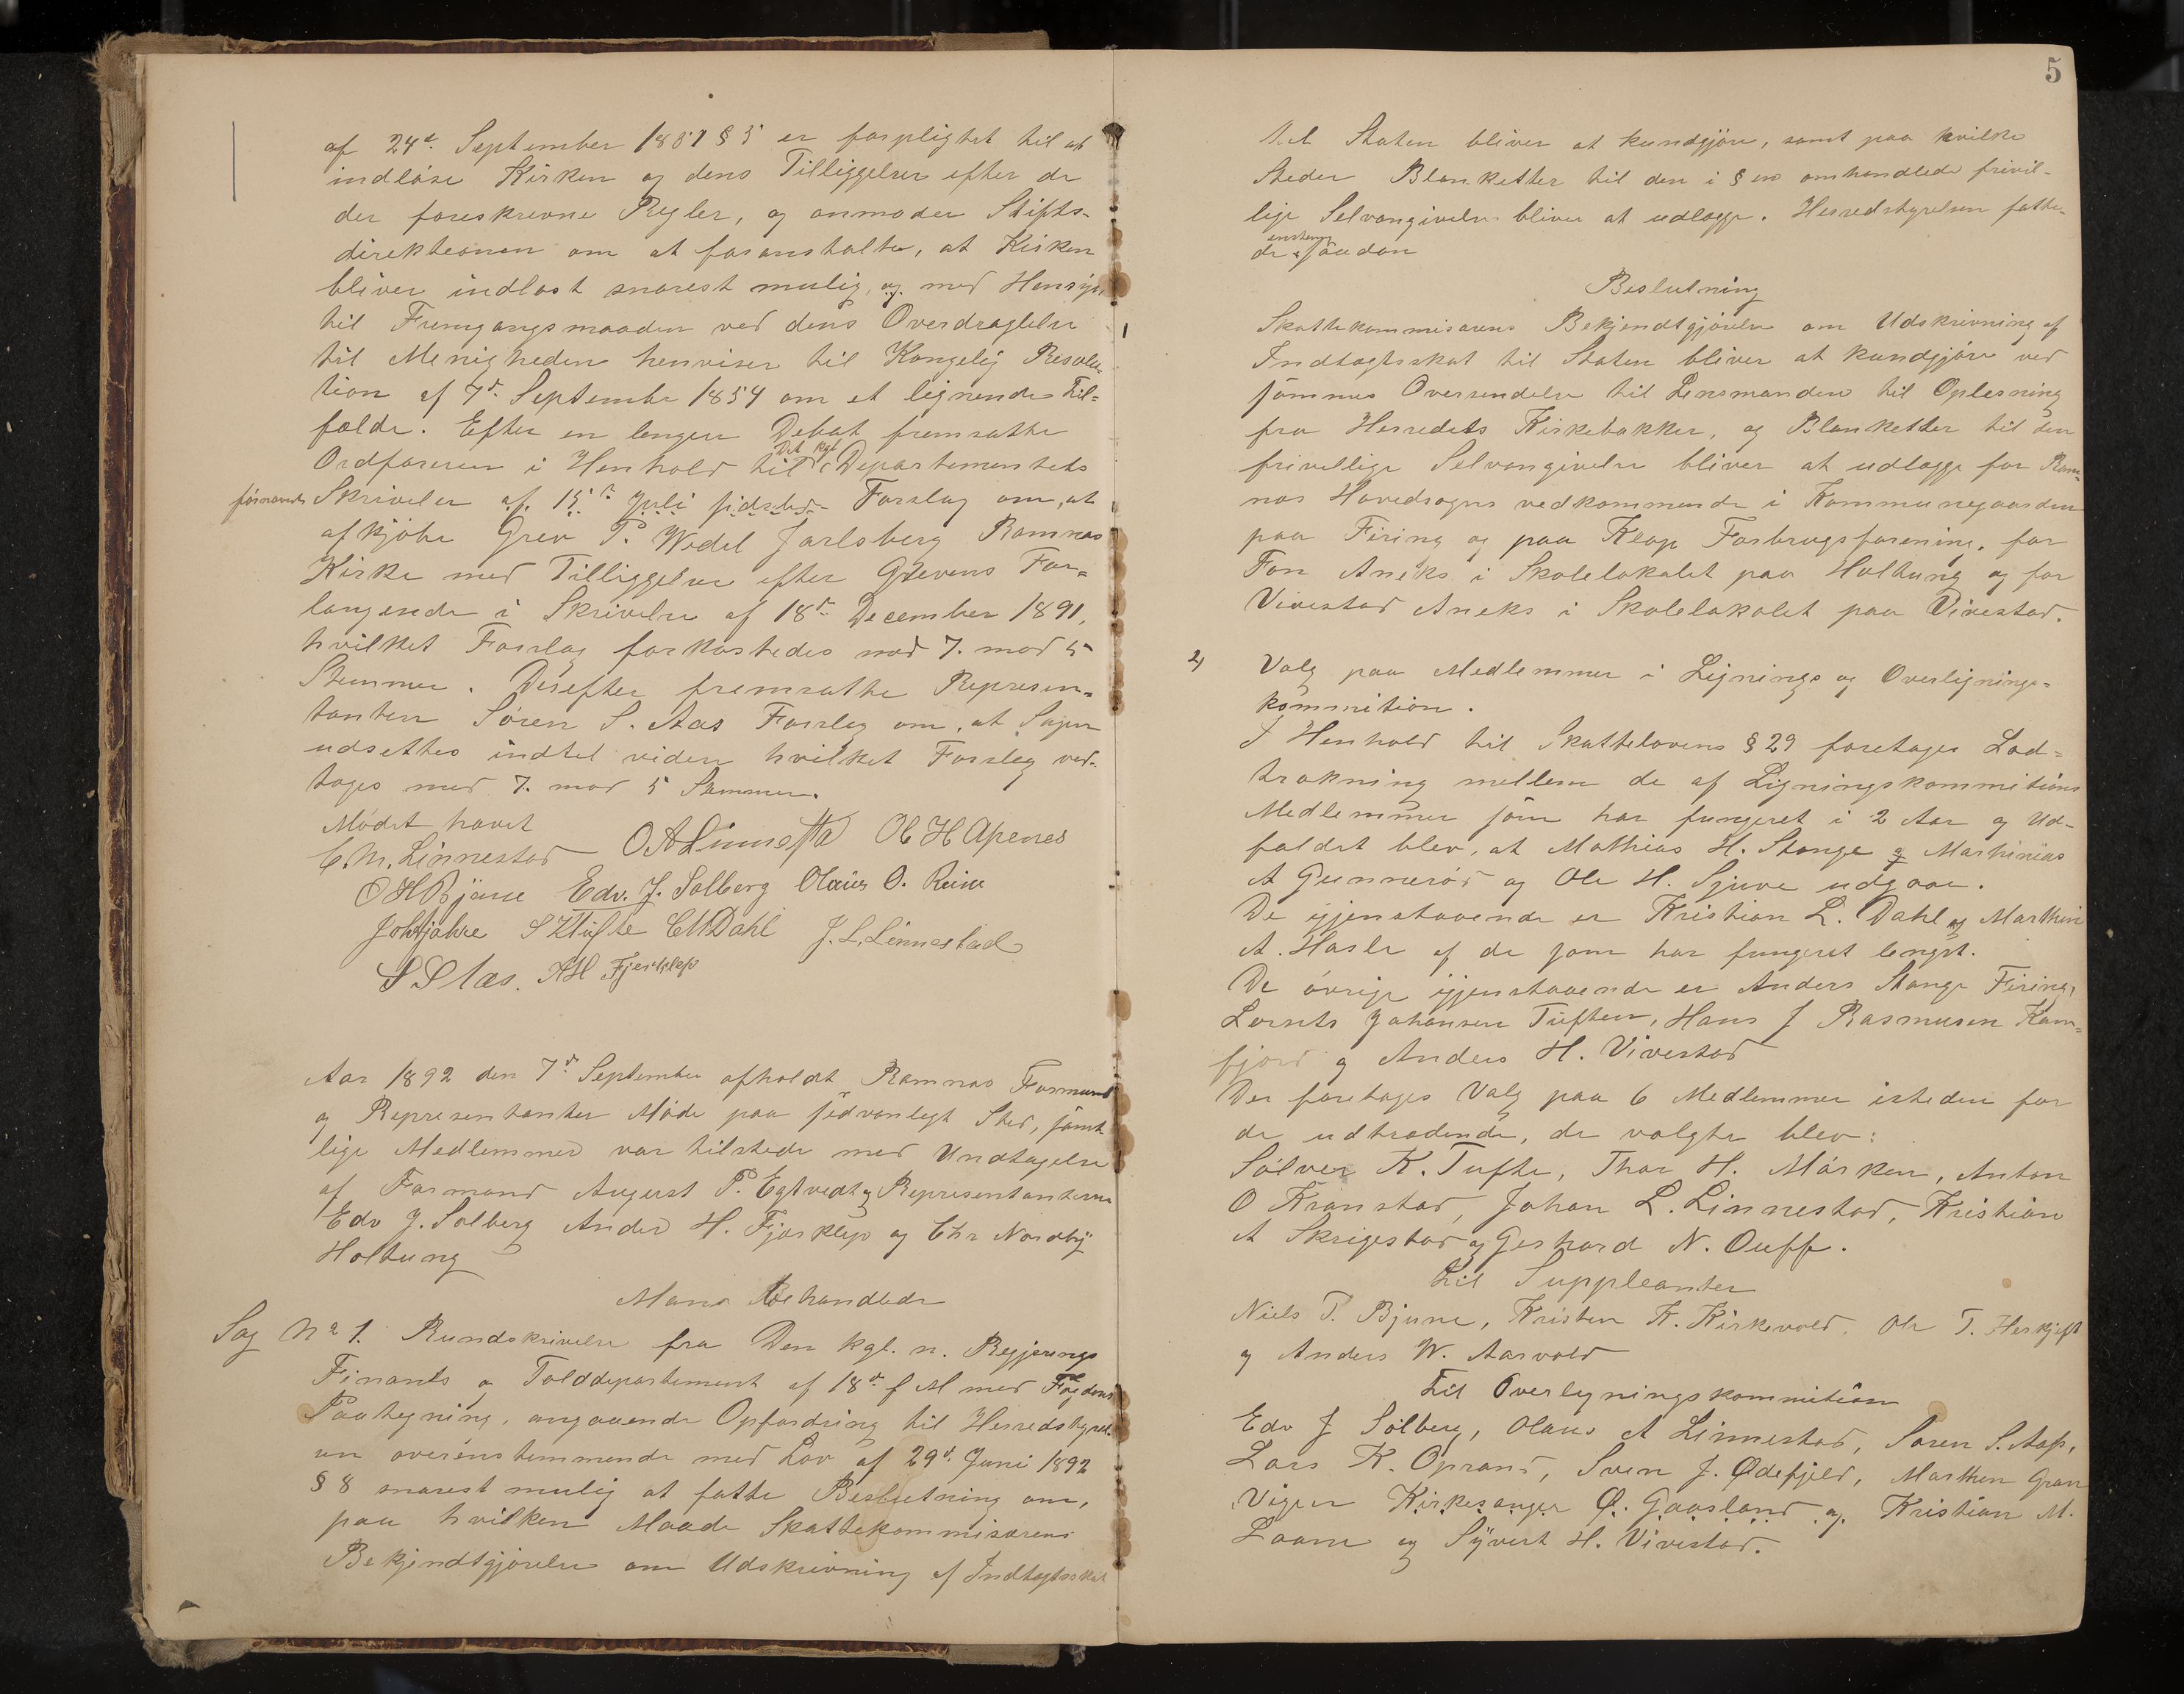 af 24de September 1851 § 5 er forpligtet til at
indløse Kirken og dens Tilliggelser efter de
der foreskrevne Regler, og anmoder Stifts-
direktionen om at foranstalte, at Kirken
bliver indløst snarest mulig, og med Hensyn
til Fremgangsmaaden ved dens Overdragelse
til Menigheden henviser til Kongelig Resolu-
tion af 7de September 1854 om et lignende Til-
fælde. Efter en længere Debat fremsatte
Ordføreren i Henhold til Det kgl Departementets
førnævnte Skrivelse af 15de Juli sidste Forslag om, at
afkjøbe Grev P. Wedel Jarlsberg Ramnæs
Kirke med Tilliggelser efter Grevens For-
langende i Skrivelse af 18de December 1891,
hvilket Forslag forkastedes med 7. mod 5
Stemmer. Derefter fremsatte Represen-
tanten Søren S. Aas Forslag om, at Sagen
udsettes indtil videre hvilket Forslag ved-
toges med 7. mod 5 Stemmer.
Mødet hævet
C. M. Linnestad O A Linnestad Ol H Apenes
O H Bjune Edv. J. Solberg Olaus O. Reine
Joh Fjøhre S K Tufte C M Dahl J. L. Linnestad
S S Aas. A H Fjerklep
Aar 1892 den 7de September afholdt Ramnæs Formænd
og Representanter Møde paa sedvanlegt Sted, samt-
lige Medlemmer var tilstede med Undtagelse
af Formand August P. Egtvedt og Representanterne
Edv J. Solberg Anders H. Fjærklep og Chr Nordby
Holtung
Man Behandlede
Sag No 1. Rundskrivelse fra Den kgl. n. Regjerings
Finants og Tolddepartement af 18de f M med Fogdens
Paategning, angaaende Opfordring til Herredstyrel-
sen overenstemmende med Lov af 29de Juni 1892
§ 8 snarest mulig at fatte Beslutning om,
paa hvilken Maade Skattekommisærens
Bekjendtgjørelse om Udskrivning af Indtægtsskat
5
til Staten bliver at kundgjøre, samt paa hvilke
Steder Blanketter til den i § omhandlede frivil-
lige Selvangivelse bliver at udlægge. Herredstyrelsen fatte-
de enstem saadan
Beslutning
Skattekommisærens Bekjendtgjørelse om Udskrivning af
Indtægtsskat til Staten bliver at kundgjøre ved
sammes Oversendelse til Lensmanden til Oplæsning
fra Herredets Kirkebakker, og Blanketter til den
frivillige Selvangivelse bliver at udlægge for Ram-
næs Hovedsogns vedkommende i Kommunegaarden
paa Firing og paa Klop Forbrugsforening, for
Fon Aneks i Skolelokalet paa Holtung og for
Vivestad Aneks i Skolelokalet paa Vivestad.
2) Valg paa Medlemmer i Lignings og Overlignings-
kommition.
I Henhold til Skattelovens § 29 foretages Lod-
trækning mellem de af Ligningskommitions
Medlemmer som har fungeret i 2 Aar og Ud-
faldet blev, at Mathias H. Stange og Mathinius
A Gunnerød og Ole H. Sjuve udgaar.
De igjenstaaende er Kristian L. Dahl og Marthin
A. Hasle af de som har fungeret lengst.
De øvrige igjenstaaende er Anders Stange Firing,
Lorents Johansen Tuften, Hans J Rasmusen Kam-
fjord og Anders H. Vivestad
Der foretages Valg paa 6 Medlemmer isteden for
de udtrædende, de valgte blev:
Sølver K. Tufte, Thor H. Mørken, Anton
O Kranstad, Johan L. Linnestad, Kristian
A Skrigestad og Gerhard N. Ouff.
til Suppleanter
Niels T. Bjune, Kristen K. Kirkevold, Ole T. Herkjest
og Anders W. Aasvold
til Overlygningskommition
Edv J Solberg, Olaus A Linnestad, Søren S. Aas,
Lars K. Oprand, Sven J. Ødefjeld, Marthin Gran
Vigen Kirkesanger O. Gaasland og Kristian M.
Laane og Syvert H. Vivestad.